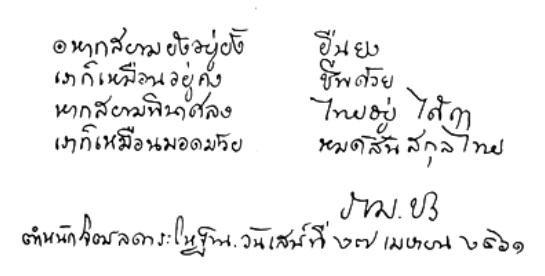 ๏ หากสยามยังอยู่ยั้ง ยืนยง
เราก็เหมือนอยู่คง ชีพด้วย
หากสยามพินาศลง ไทยอยู่ ได้ฤา
เราก็เหมือนมอดม้วย หมดสิ้น สกุลไทย
ราม. ปร
ตำหนักจิตรลดาระโหฐาน. วันเสาร์ที่ ๒๗ เมษายน ๒๔๖๑